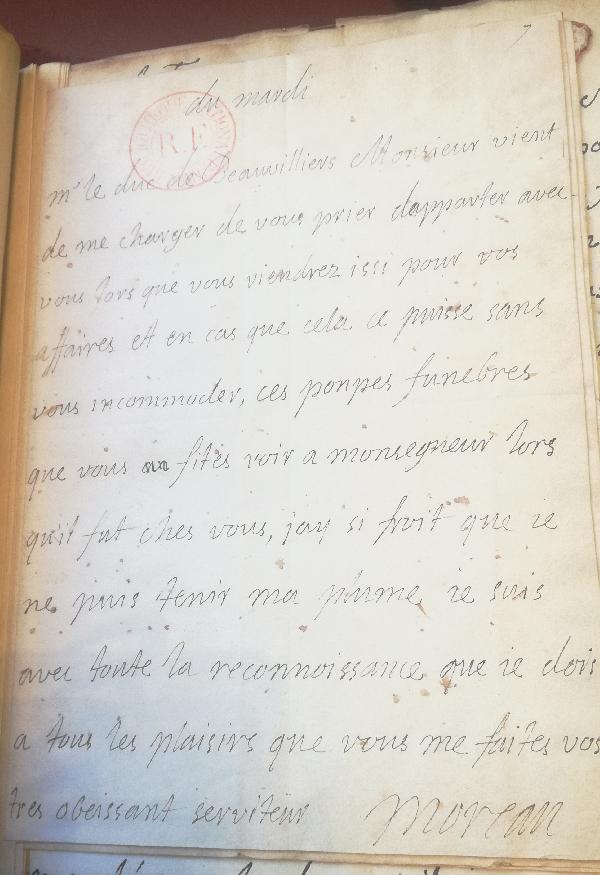 7
du mardi
R.F
mr le duc de Beauvilliers Monsieur vient
de me charger de vous prier dapparter avec
vous lors que vous viendrez issi pour vos
affaires ett en cas que cela ce puisse sans
vous incommoder, ces ponpes funebres
que vous fites voir a monsegneur lors
qu'il fut ches vous, jay si froit que ie
ne puis tenir ma plume, ie suis
avec toute la reconnoissance que ie dois
a tous les plaisirs que vous me faites vos
tres obeissant serviteur Moreau